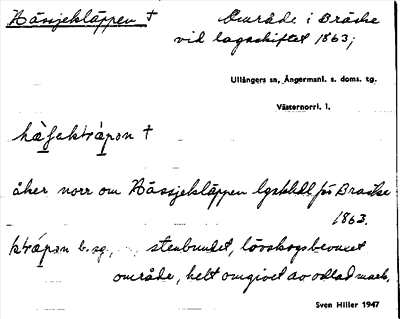 Hässjekläppen † Område i Bräcke
vid lagaskiftet 1863;
Ullångers sn, Ångermanl. s. doms. tg.
Västernorrl. l.
åker norr om Hässjekläppen lgskhdl för Bräcke
1863.
b. sg., stenbundet, lövskogsbevuxet
område, helt omgivet av odlad mark.
Sven Hiller 1947